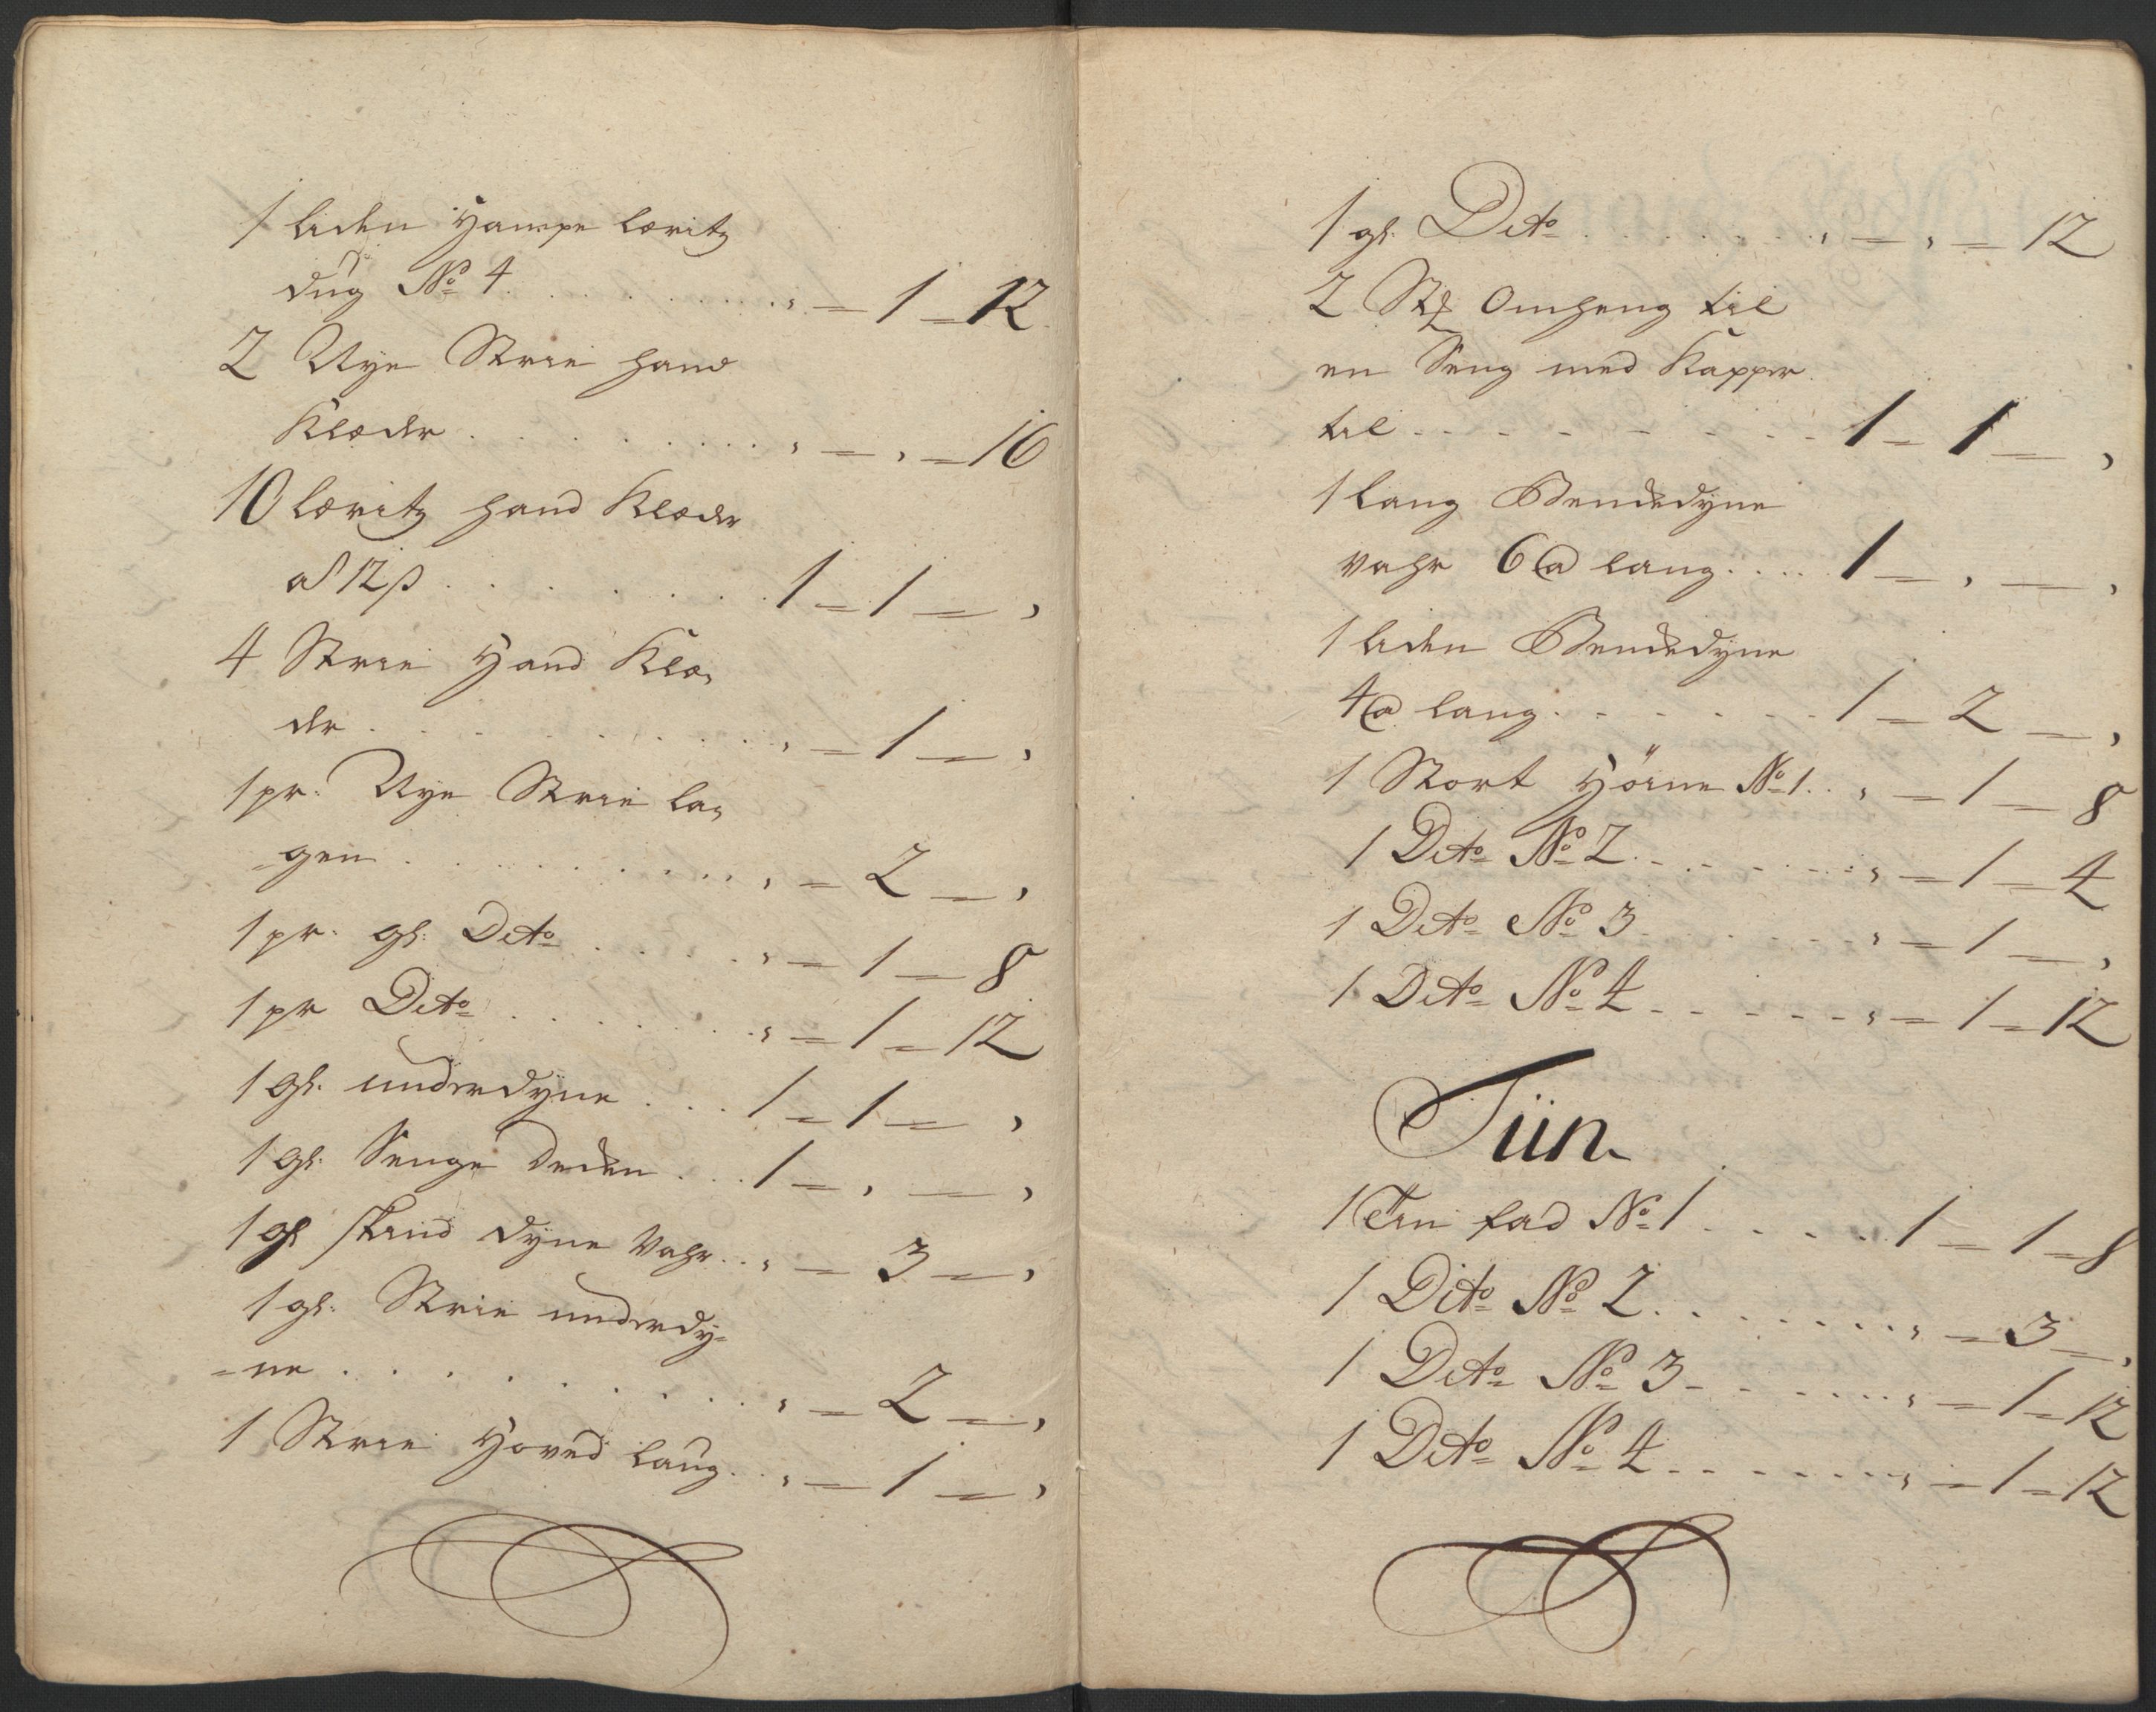 1 liden Hampe lærits
dug No 4 . . . . . . . . „ = 1 = 12
2 Nye Strie hand
Klæder . . . . . . . . „ = „ = 16
10 lærits hand Klæder
a 12 ß . . . . . . . 1 = 1 = „
4 Strie Hand Klæ,
der . . . . . . . . „ = 1 = „
1 pr. Nye Strie la,
=gen . . . . . . . . „ = 2 = „
1 pr. gl: Dito . . . . . „ = 1 = 8
1 pr Dito . . . . . . . „ = 1 = 12
1 gl. underdyne . . . 1 = 1 = „
1 gl: Senge Decken . . . 1 = „ = „
1 gl skind dyne Vahr . . „ = 3 = „
1 gl. Strie underdy=
=ne . . . . . . . . „ = 2 = „
1 Strie Hoved laug . . „ = 1 = „
1 gl. Dito . . . . . . . „ = „ = 12
2 Stk Omheng til
en Seng med Kapper
til . . . . . . . . 1 = 1 = „
1 lang Bendedyne
Vahr 6 @ lang . . . . 1 = „ = „
1 liden Bendedyne
4 @ lang . . . . . . 1 = 2 = „
1 Stort Hörne No 1 . . „ = 1 = 8
1 Dito No 2 . . . . . . „ = 1 = 4
1 Dito No 3 . . . . . . „ = 1 = „
1 Dito No 4 . . . . . . „ = 1 = 12
Tiin
1 Tin fad No 1 . . . . . 1 = 1 = 8
1 Dito No 2 . . . . . . „ = 3 = „
1 Dito No 3 . . . . . . „ = 1 = 12
1 Dito No 4 . . . . . . „ = 1 = 12